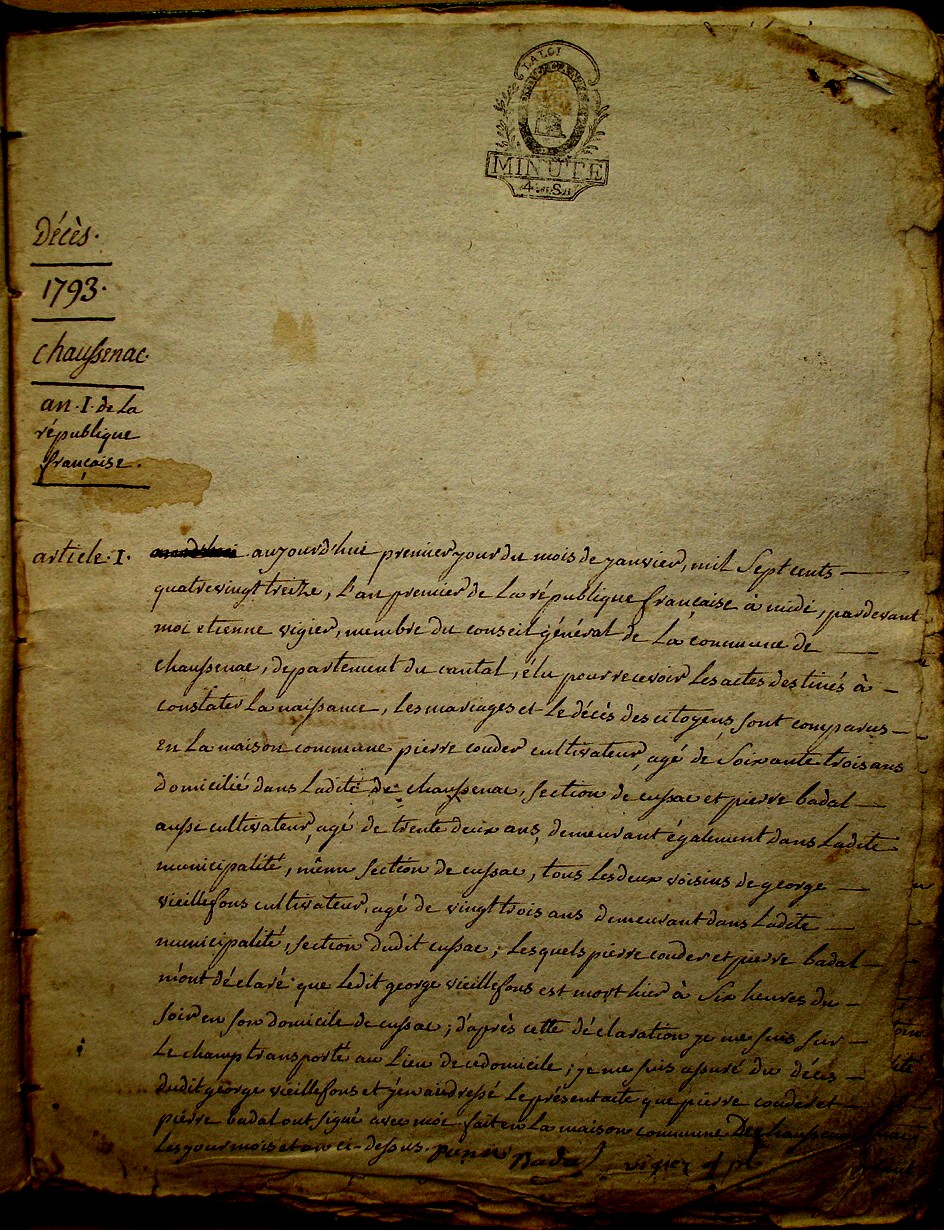 LA LOI
MINUTE
4 S
Décès.
1793.
chaussenac.
an I de la
république
française.
article I. aujourd'hui premier jour du mois de janvier, mil sept cents
quatre vingt treize, l'an premier de la république française à midi, pardevant
moi etienne vigier, membre du conseil général de la commune de
chaussenac, departement du cantal, élu pour recevoir les actes destinés à
constater la naissance, les mariages et le décès des citoyens, sont comparus
en la maison commune pierre couder cultivateur, agé de soixante trois ans
domicilié dans ladite de chaussenac, section de cussac et pierre badal
aussi cultivateur, agé de trente deux ans, demeurant également dans ladite
municipalité, même section de cussac, tous les deux voisins de george
vieillefons cultivateur, agé de vingt trois ans demeurant dans ladite
municipalité, section dudit cussac; lesquels pierre couder et pierre badal
m'ont déclaré que ledit george vieillefons est mort hier à six heures du
soir en son domicile de cussac; d'après cette déclaration je me suis sur
le champ transporté au lieu de ce domicile; je me suis assuré du décès
dudit george vieillefons et j'en ai dressé le présent acte que pierre couder et
pierre badal ont signé avec moi. fait en la maison commune De chaussenac
les jour mois et an ci-dessus. pierre Badal vigier